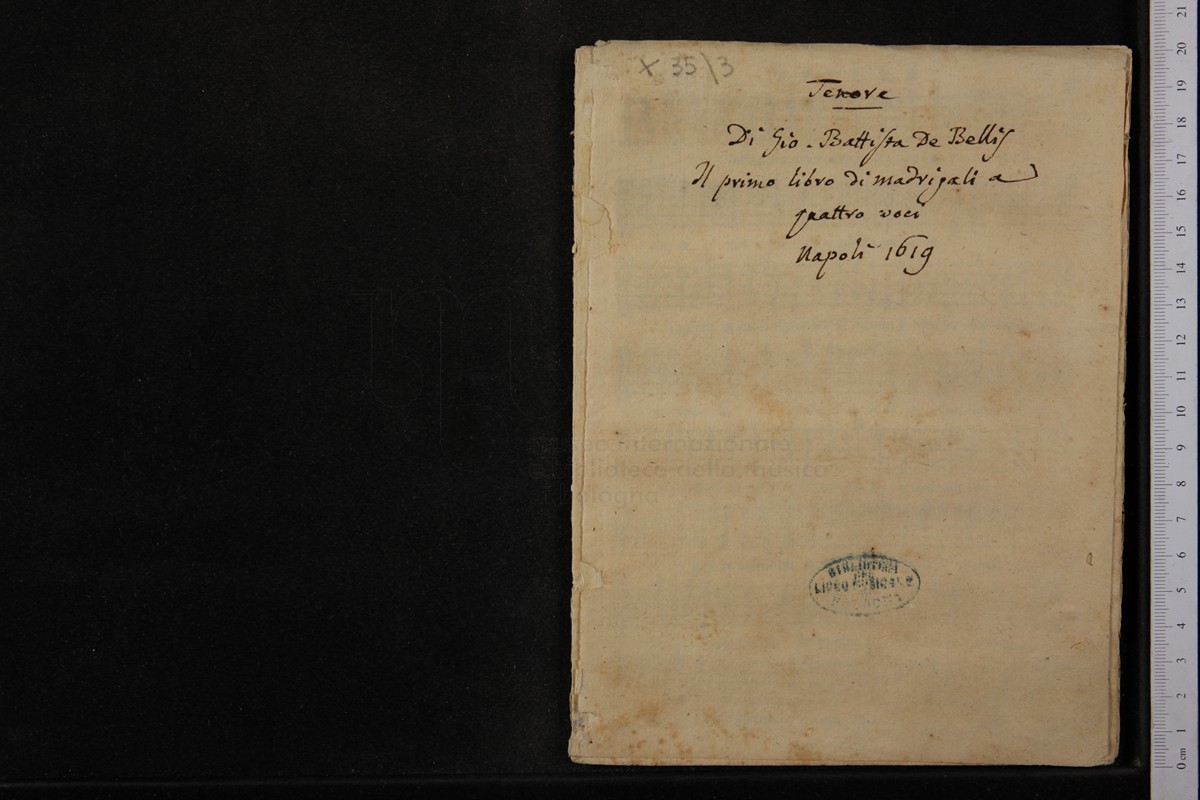 X 35\3
Tenore
Di Gio. Battista De Bellis
Il primo libro di madrigali a
quattro voci
Napoli 1619
internazionale
biblioteca della musica
bologna
BIBLIOTECA
DEL
LICEO MUSICALE
21
20
19
18
17
16
15
14
13
12
11
10
9
8
7
6
5
4
3
2
1
0 cm